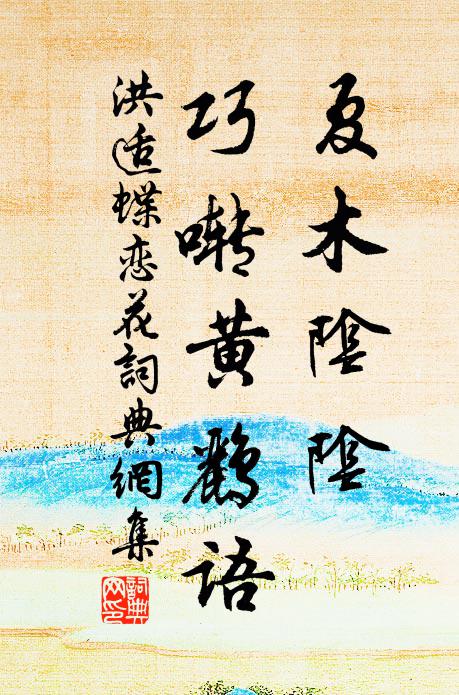 夏木陰陰
巧囀黃鸝語
洪适蝶恋花詞典網集
詞典
网印